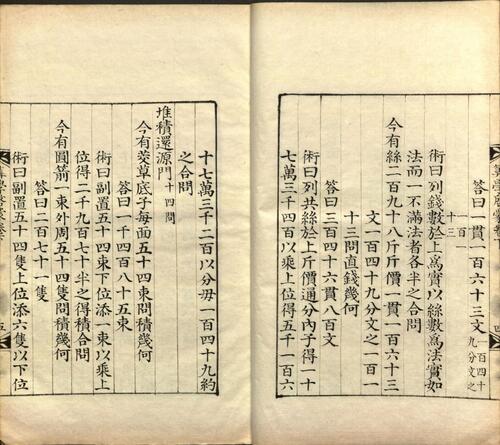 答曰一貫一百六十三文一百四十九分文之
一百一十三
術曰列錢數於上爲實以絲數爲法實如
法而一不滿法者各半之合問
今有絲二百九十八斤斤價一貫一百六十三
文一百四十九分文之一百一
十三問直錢幾何
答曰三百四十六貫八百文
術曰列共絲於上斤價通分內子得一十
七萬三千四百以乘上位得五千一百六
十七萬三千二百以分毋一百四十九約
之合問
堆積還源門十四問
今有茭草底子每面五十四束問積幾何
答曰一千四百八十五束
術曰副置五十四束下位添一束以乘上
位得二千九百七十半之得積合問
今有圓箭一束外周五十四隻問積幾何
答曰二百七十一隻
術曰副置五十四隻上位添六隻以下位